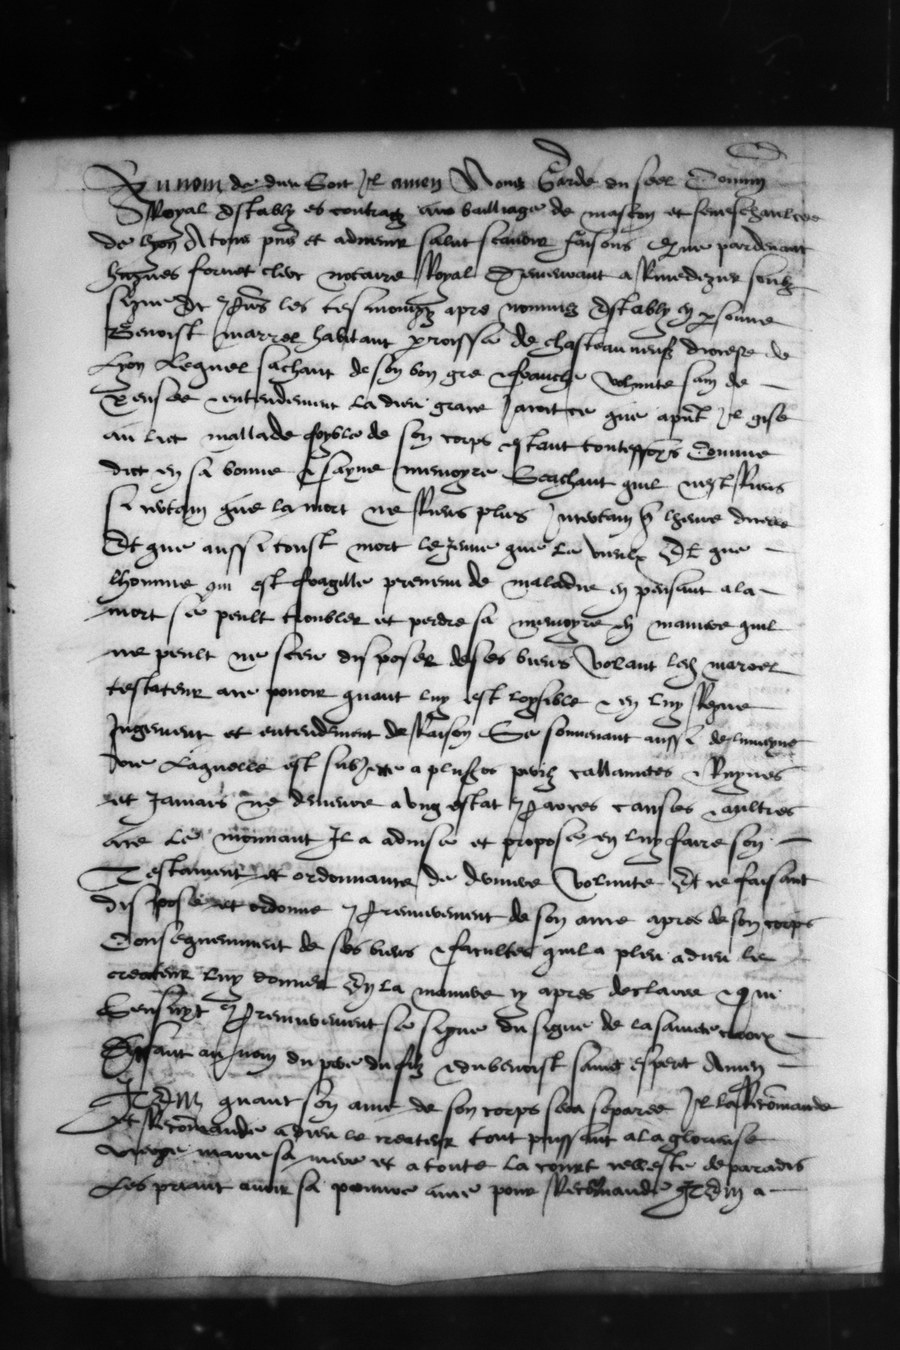 Au nom de dieu Soit Il amen Nous Garde du seel Commun
Royal estably es contraz aux bailliage de mascon et seneschaulcee
de lyon A tous pns et advenir salut scavoir faisons Que pardevant
hugues fornet clerc notaire Royal demeurant a Rivedegier soubz
signe Et pns les tesmoingz apres nommez Estably en personne
Benoist marrel habitant parroisse de chasteauneufz diocese de
Lyon Lequel sachant de son bon gre & franche volunte sain de
pensee & entendement la dieu grace Jacoit ce que apnt Il gise
au lict mallade foyble de son corps estant touteffoys Comme
dict en sa bonne & sayne memoyre Saichant quil nest Riens
si certain que la mort ne Riens plus Incertain que lheure dicelle
Et que aussi toust mort le jeune que le vieulx Et que
lhomme qui est fragille prevenu de maladie en pensant a la
mort se peult troubler et perdre sa memoyre en maniere quil
ne peult ne sceu disposer de ses biens Volant led marrel
testateur ce pouoir quant luy est loysible & en luy Regne
Jugement et entendement de Raison Se souvenant aussi de lhumayne
vie Laquelle est subjecte a plusrs perilz callamites & Ruynes
et Jamais ne demeure a ung estat Par ces causes & aultres
ace le mouvant Il a advise et propose en luy faire son
Testament et ordonnance de derniere Volunte Et ce faisant
dispose et ordonne Premierement de son ame apres de son corps
Consequemment de ses biens & facultes quil a pleu a dieu le
createur luy donner En la maniere cy apres declaree & qui
Sensuyt Premierement se signe du signe de la saincte croix
Disant au nom du pere du filz & du benoist sainct esperit Amen
Item quant son ame de son corps sera separee Il la Recomande
et Recomande a dieu le createur tout puissant a la glorieuse
vierge marie sa mere et a toute la court celleste de paradis
Les priant avoir sa pouvre ame pour Recomande Item a